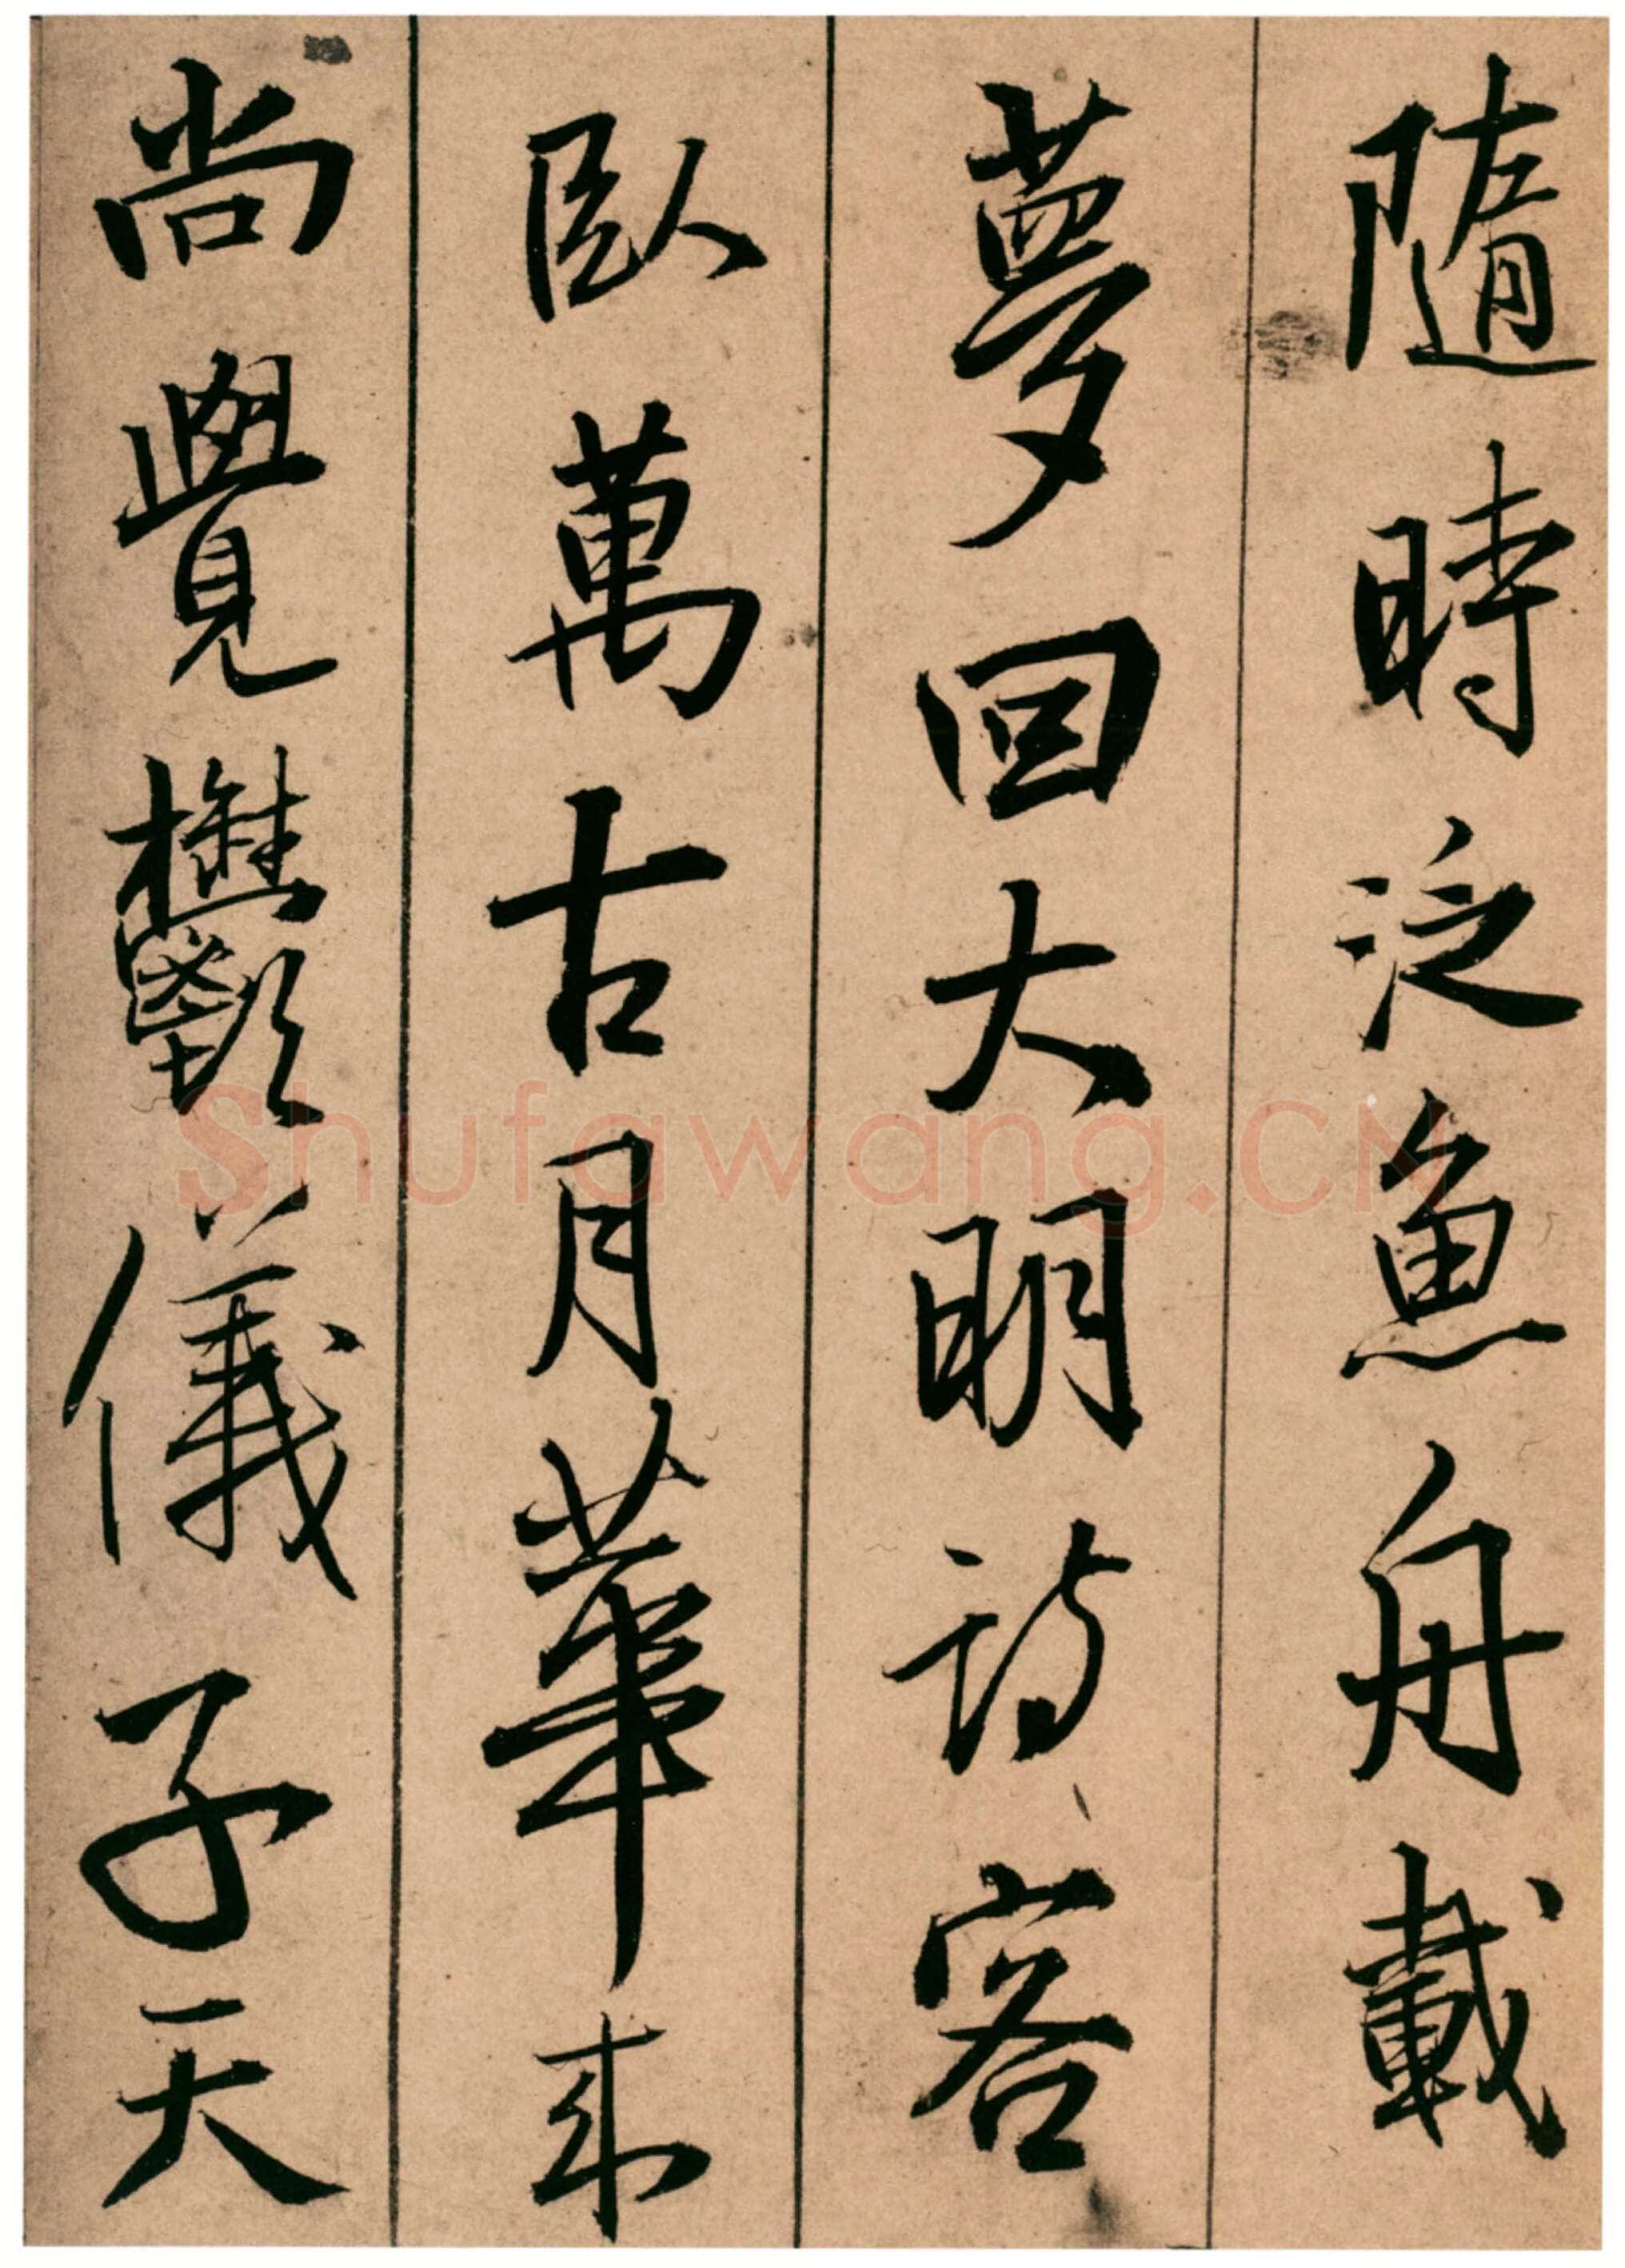 隨時泛魚舟載
夢回大明詩客
臥萬古月華來
尚覺鬱儀子天
Shufawang.CN